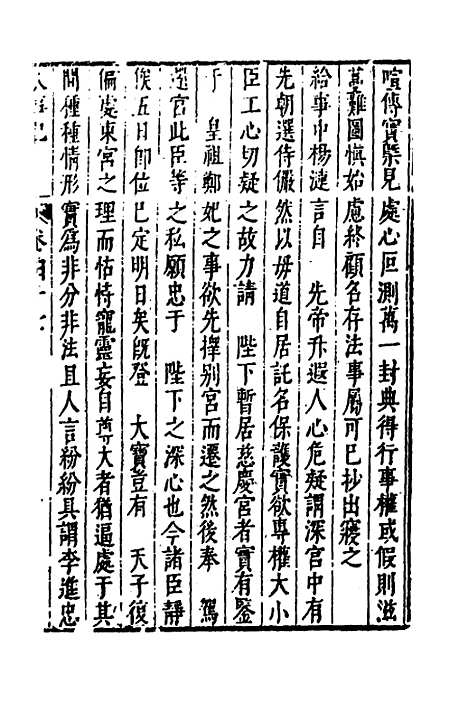 喧傳實槩見處心叵測萬一封典得行事權或假則滋
蔓難圖愼始慮終顧名存法事屬可已抄出寢之
給事中楊漣言自　先帝升遐人心危疑謂深宮中有
先朝選侍儼然以毋道自居託名保護實欲專權大小
臣工心切疑之故力請　陛下暫居慈慶宮者實有鑒
于　皇祖鄭妃之事欲先擇別宮而遷之然後奉　駕
還宮此臣等之私願忠于　陛下之深心也今諸臣靜
俟五日卽位已定明日矣旣登　大寶豈有　天子復
偏處東宮之理而怙恃寵靈妄自尊大者猶逼處于其
間種種情形實爲非分非法且人言紛紛具謂李進忠